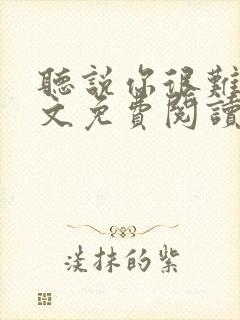 聽說你很難
文免費閱讀
淡抹的紫